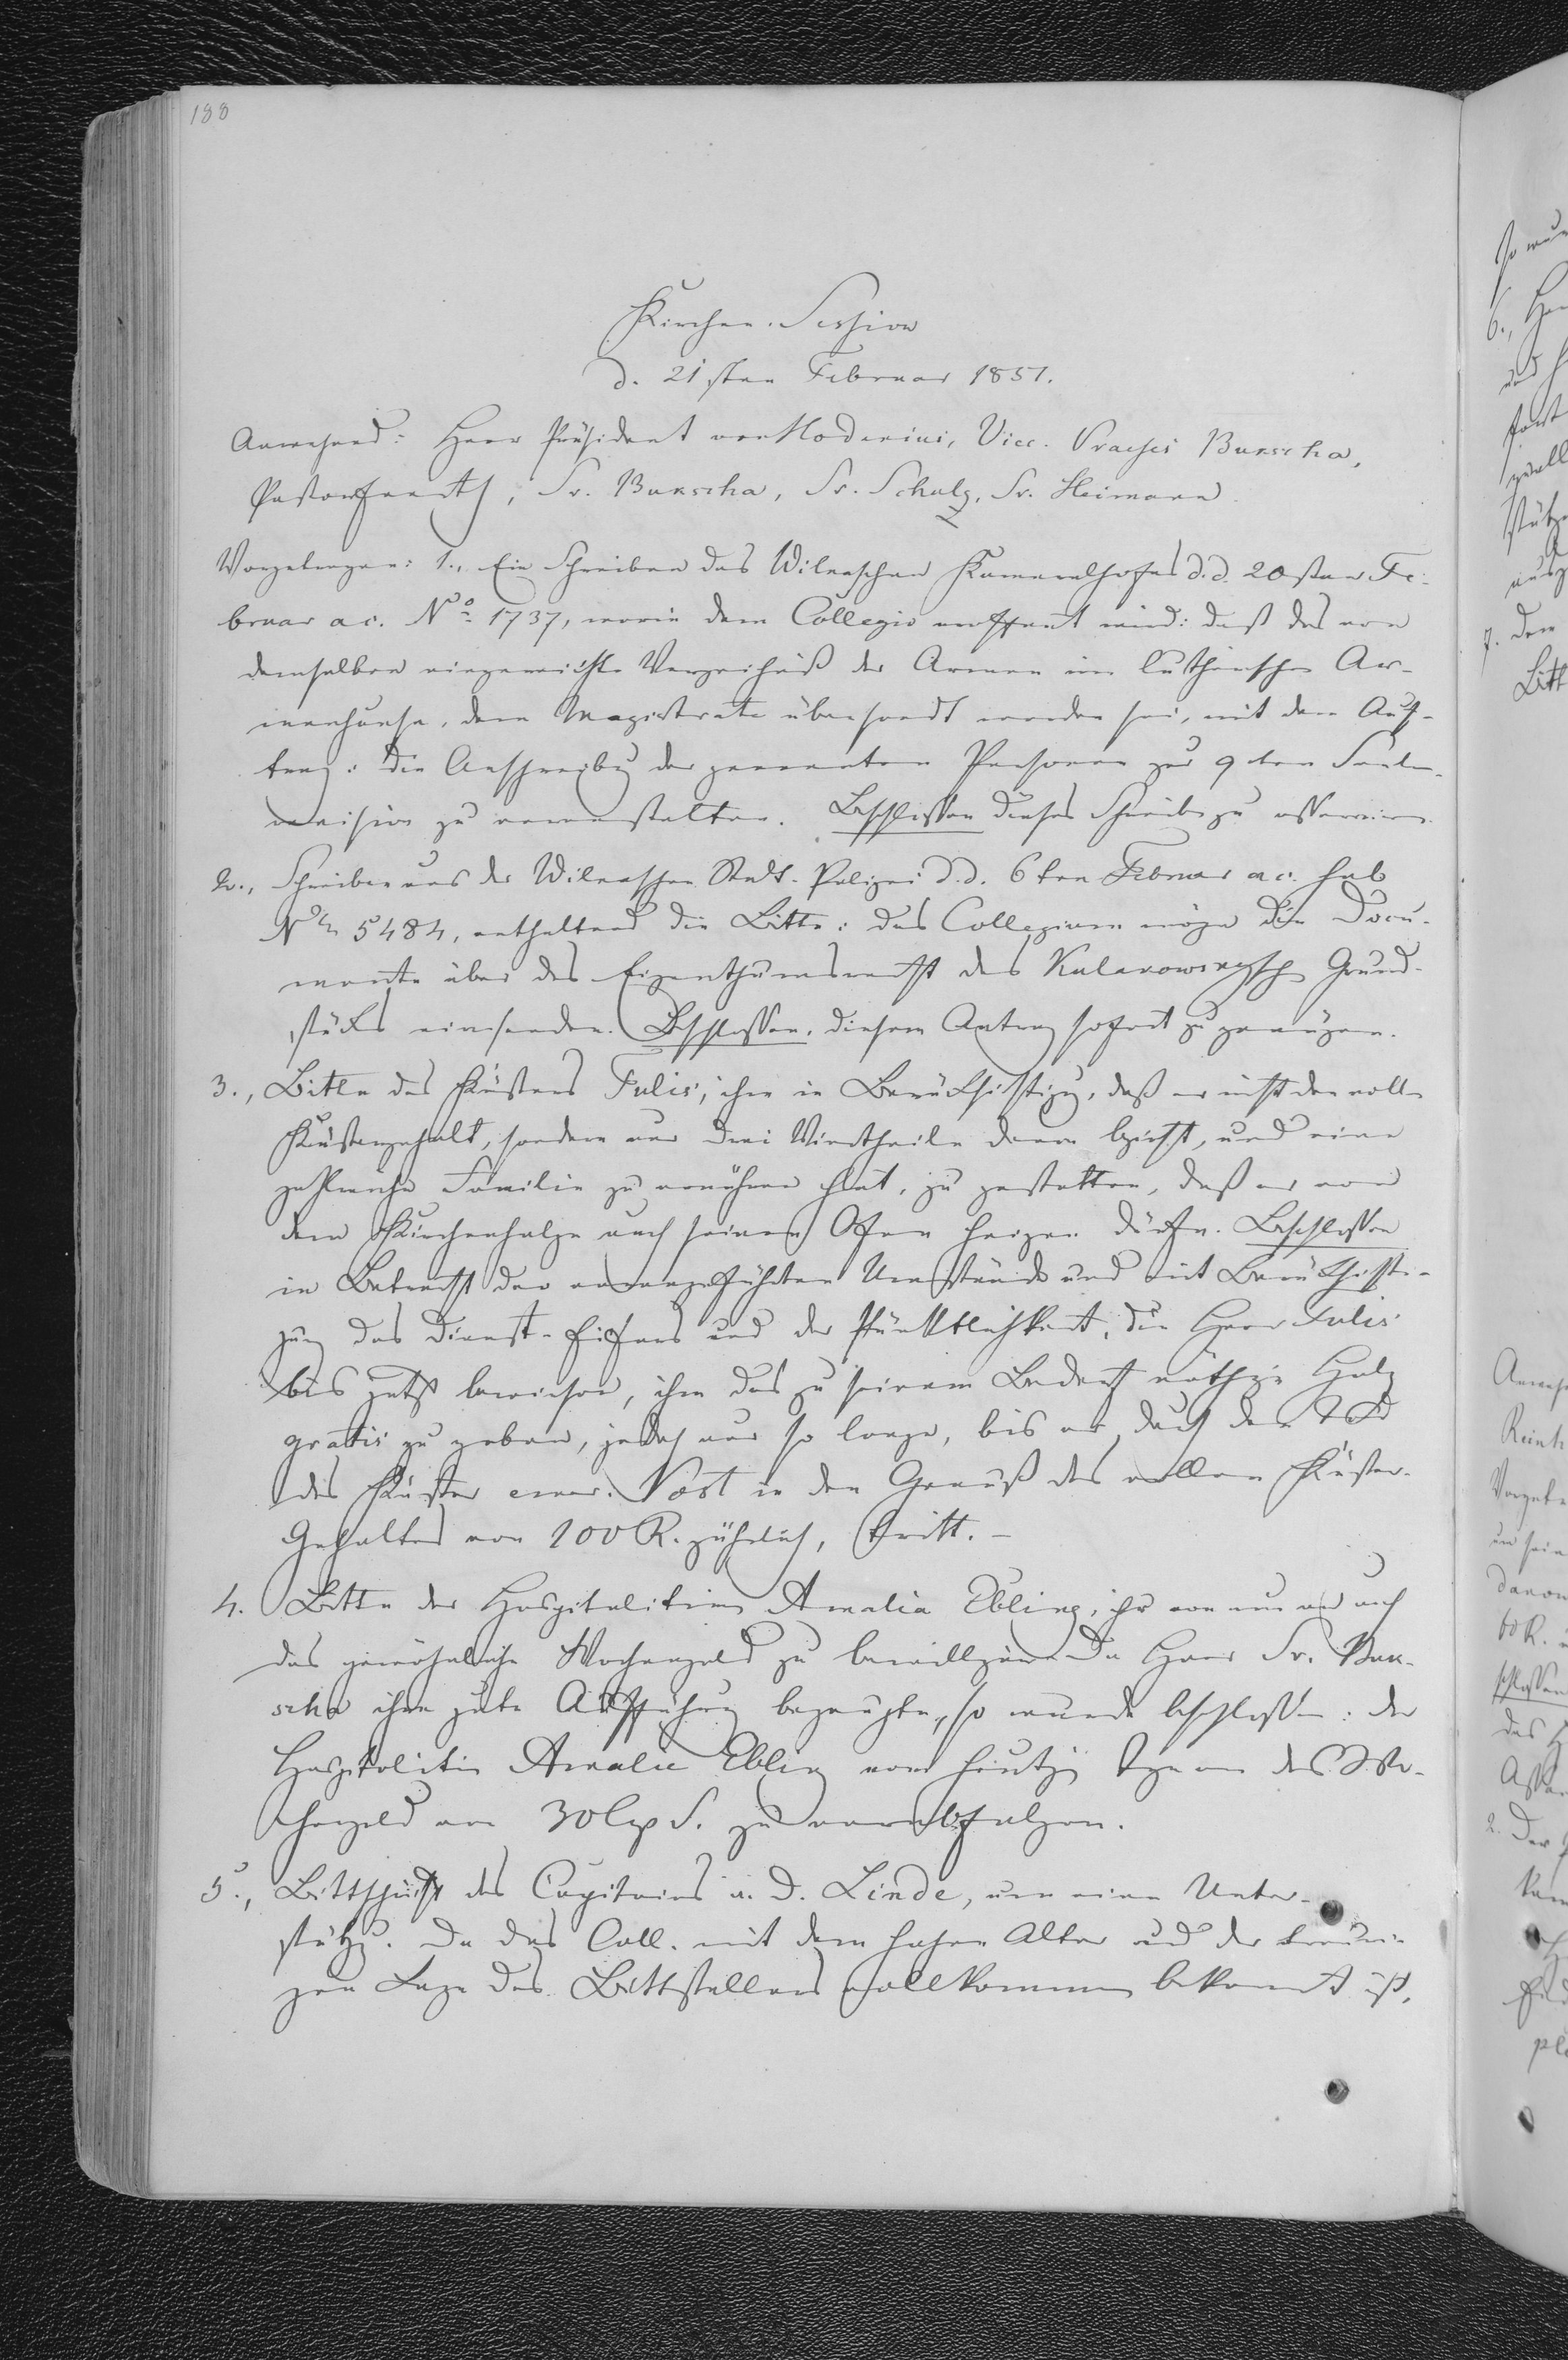 188
Kirchen-Session
d. 21sten Februar 1851.
Anwesend: Herr Präsident von Moderini, Vice-Praeses Burscha,
Pastor, Sr. Burscha, Sr. Schulz, Sr. Heimann.
Vorgetragen: 1., Ein Schreiben des Wilnaschen Kameralhofes d. d. 20sten Fe-
bruar a c. No 1737, worin dem Collegio eröffnet wird: daß das von
demselben eingereichte Verzeichniß der Armen im luthrischen Ar-
menhause, dem Magistrate übersandt worden sei, mit dem Auf-
trag: die Anschreibung der genannten Personen zur 9ten Seelen-
revision zu veranstalten. Beschlossen dieses Schreiben zu asserviren.
2., Schreiben aus der Wilnaschen Stadt-Polizei d. d. 6ten Februar a c. sub
No 5484, enthaltend die Bitte: das Collegium möge die Docu-
mente über das Eigenthumsrecht des Grund-
stücks einsenden. Beschlossen, diesem Antrag sofort zu genügen.
3., Bitte des Küsters Tulis, ihm in Berücksichtigung, daß er nicht den vollen
Küstergehalt, sondern nur drei Viertheile davon bezieht, und eine
zahlreiche Familie zu ernähren hat, zu gestatten, daß er von
dem Kirchenholze auch seinen Ofen heizen dürfe. Beschlossen
in Betracht der angeführten Umstände und mit Berücksichti-
gung des Dienst-Eifers und der Pünktlichkeit, die Herr Tulis
bis jetzt bewiesen, ihm das zu seinem Bedarf nöthige Holz
gratis zu geben, jedoch nur so lange, bis er durch den Tod
des Küster emer. Vost in den Genuß des vollen Küster-
Gehaltes von 100 R. jährlich, tritt. –
4. Bitte der Hospitalitin Amalia Ebling, ihr von nun an auch
das gewöhnliche Wochengeld zu bewilligen. Da Herr Sr. Bur-
scha ihre gute Aufführung bezeugte, so wurde beschlossen: der
Hospitalitin Amalie Ebling vom heutigen Tage an das Wo-
chengeld von 30 Cop S. zu verabfolgen.
5., Bittschrift des Capitains a. D. Linde, um eine Unter-
stützg. Da das Coll. mit dem hohen Alter und der trauri-
gen Lage des Bittstellers vollkommen bekannt ist,